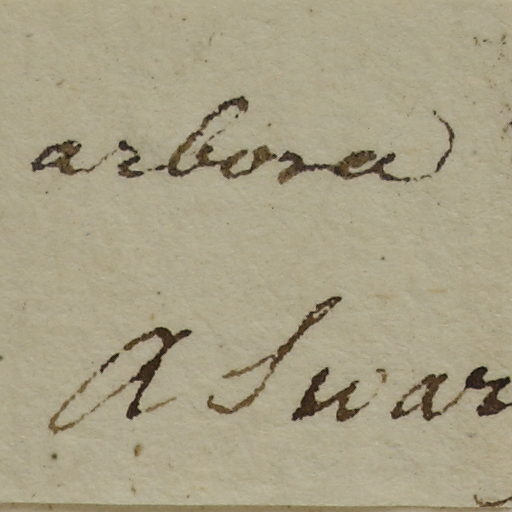 arbora
A Swar